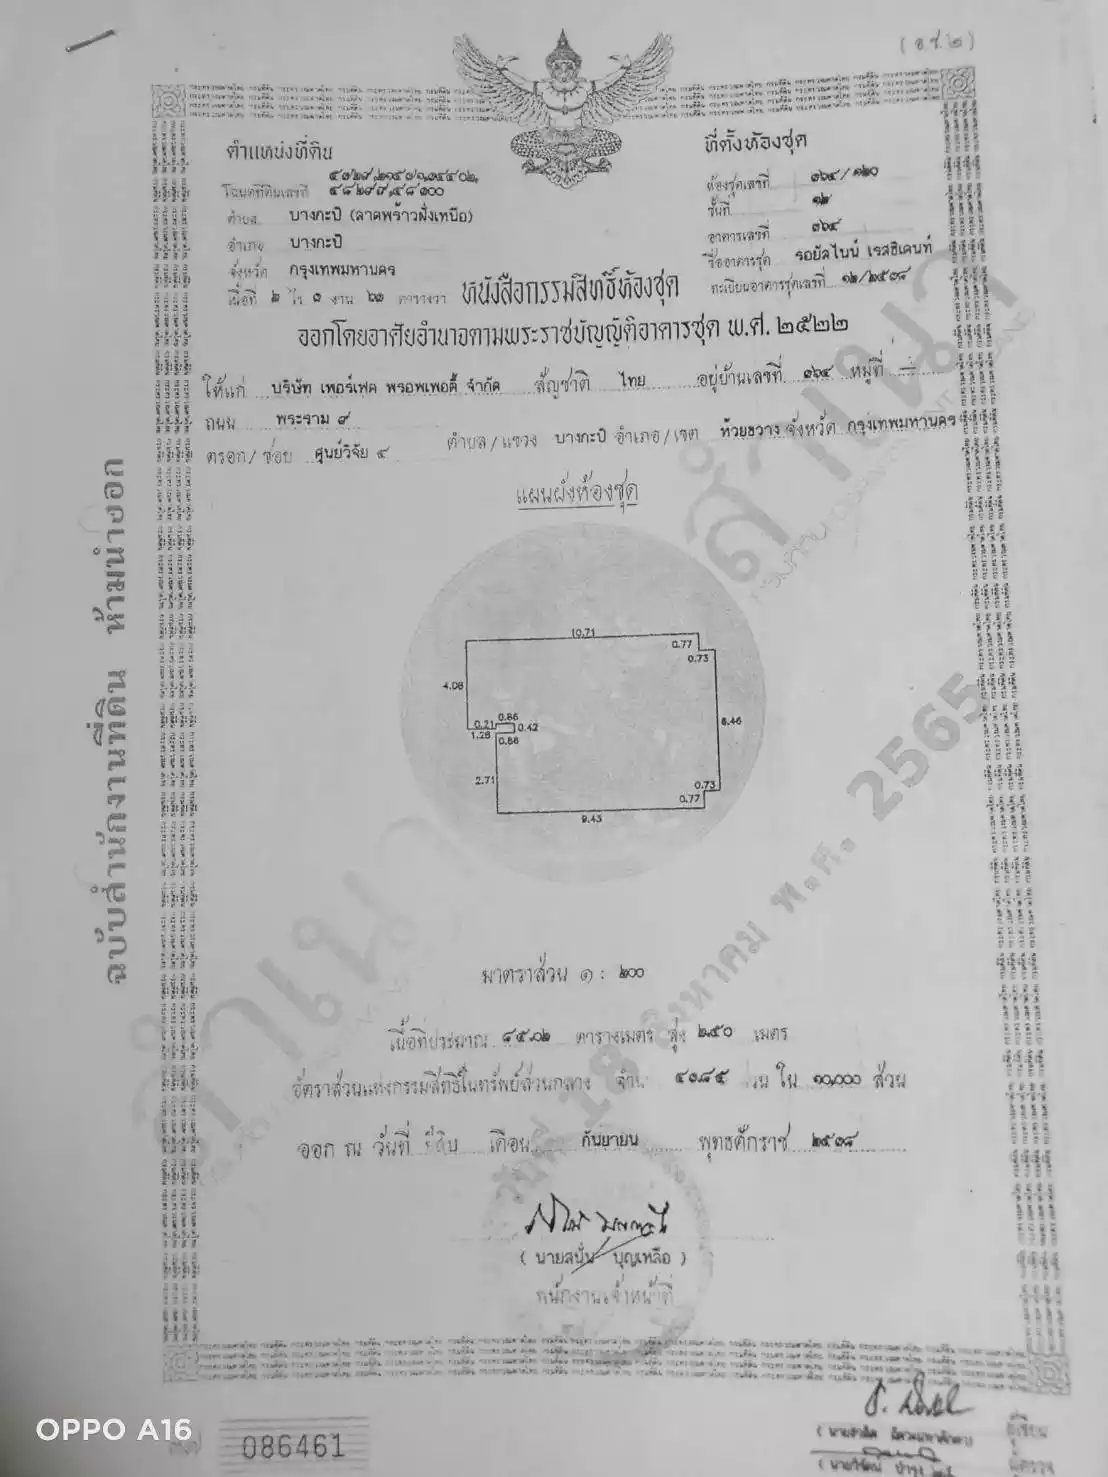 (อ.ช.๒)
ตำแหน่งที่ดิน
โฉนดที่ดินเลขที่
ตำบล บางกะปิ (ลาดพร้าวฝั่งเหนือ)
อำเภอ บางกะปิ
จังหวัด กรุงเทพมหานคร
เนื้อที่ ๒ ไร่ ๑ งาน ๖๑ ตารางวา
ที่ตั้งห้องชุด
ห้องชุดเลขที่ ๓๖๔/๑๒๐
ชั้นที่ ๑๒
อาคารเลขที่ ๓๖๔
ชื่ออาคารชุด รอยัลไนน์ เรสซิเดนท์
ทะเบียนอาคารชุดเลขที่ ๑๒/๒๕๓๘
หนังสือกรรมสิทธิ์ห้องชุด
ออกโดยอาศัยอำนาจตามพระราชบัญญัติอาคารชุด พ.ศ. ๒๕๒๒
ให้แก่ บริษัท เพอร์เฟค พรอพเพอตี้ จำกัด สัญชาติ ไทย อยู่บ้านเลขที่ ๓๖๔ หมู่ที่ -
ถนน พระราม ๙
ตรอก/ซอย ศูนย์วิจัย ๔ ตำบล/แขวง บางกะปิ อำเภอ/เขต ห้วยขวาง จังหวัด กรุงเทพมหานคร
แผนผังห้องชุด
10.71
0.77
0.73
4.08
0.86
0.21
0.42
1.28
0.86
6.46
2.71
0.73
0.77
9.43
มาตราส่วน ๑ : ๒๐๐
เนื้อที่ประมาณ ๘๕.๐๒ ตารางเมตร สูง ๒.๕๐ เมตร
อัตราส่วนแห่งกรรมสิทธิ์ในทรัพย์ส่วนกลาง ใน ๑๐,๐๐๐ ส่วน
ออก ณ วันที่ ยี่สิบ เดือน กันยายน พุทธศักราช ๒๕๓๘
(นายสนั่น บุญเหลือ)
พนักงานเจ้าหน้าที่
ฉบับสำนักงานที่ดิน ห้ามนำออก
สำเนา
สำเนา
วันที่ 18 สิงหาคม พ.ศ. 2565
086461
ผู้เขียน
ผู้ตรวจ
OPPO A16